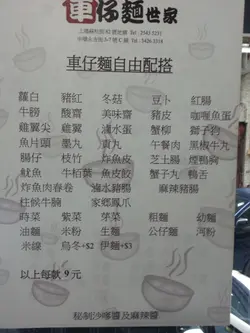 車仔麵世家
車仔麵自由配搭
蘿蔔 豬紅 冬菇 豆卜 紅腸
牛膀 酸齋 美味齋 豬皮 咖喱魚蛋
雞翼尖 雞翼 滷水蛋 蟹柳 獅子狗
魚片頭 墨丸 貢丸 午餐肉 黑椒牛丸
腸仔 枝竹 炸魚皮 芝士腸 煙鴨胸
魷魚 牛栢葉 魚皮餃 蟹子丸 鴨舌
炸魚肉春卷 滷水豬腸 麻辣豬腸
柱候牛腩 家鄉鳳爪
蒔菜 紫菜 芽菜 粗麵 幼麵
油麵 米粉 生麵 公仔麵 河粉
米線 烏冬+$2 伊麵+$3
以上每款 9 元
秘制沙嗲醬及麻辣醬